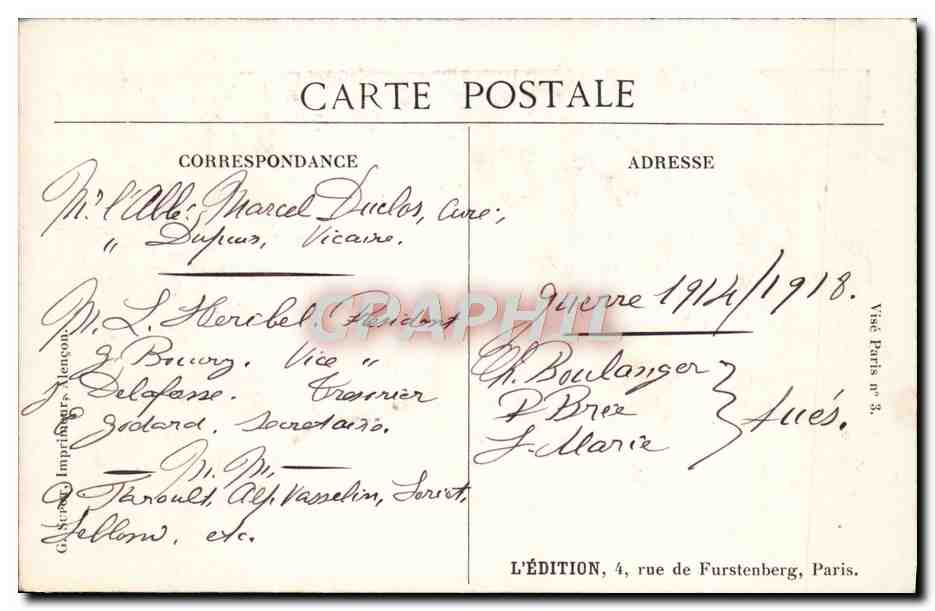 CARTE POSTALE
CORRESPONDANCE
Mr l'Abbé, Marcel Duclos, Curé,
" Dupuis, Vicaire.
M. L. Heribel Président
G. Bourg. Vice "
J Delafosse. Trésorier
Godard, Secrétaire.
M. M.
Thiroult, Alf. Vasselin, Loriot,
Lellom, etc.
G. Supot, Imprimeur, Alençon.
ADRESSE
Guerre 1914/1918.
Ch. Boulanger
P Brée
L. Marie
tués.
Visé Paris nº 3.
L'ÉDITION, 4, rue de Furstenberg, Paris.
CRAPHIL